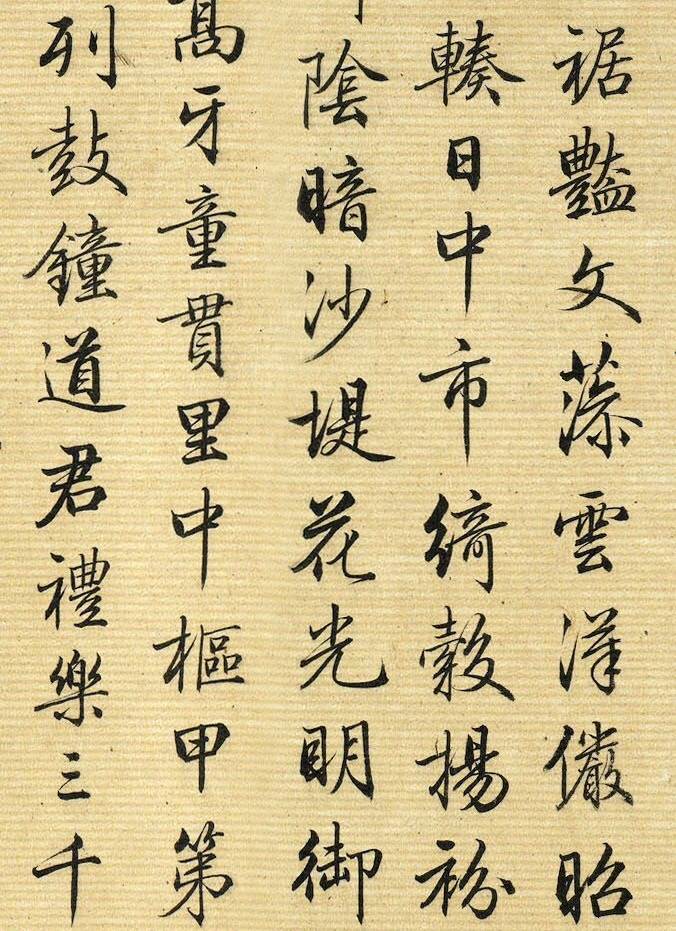 裾豔文藻雲漢儼昭
輳日中市綺縠揚衯
陰暗沙堤花光明御
髙牙童貫里中樞甲第
列鼓鐘道君禮樂三千